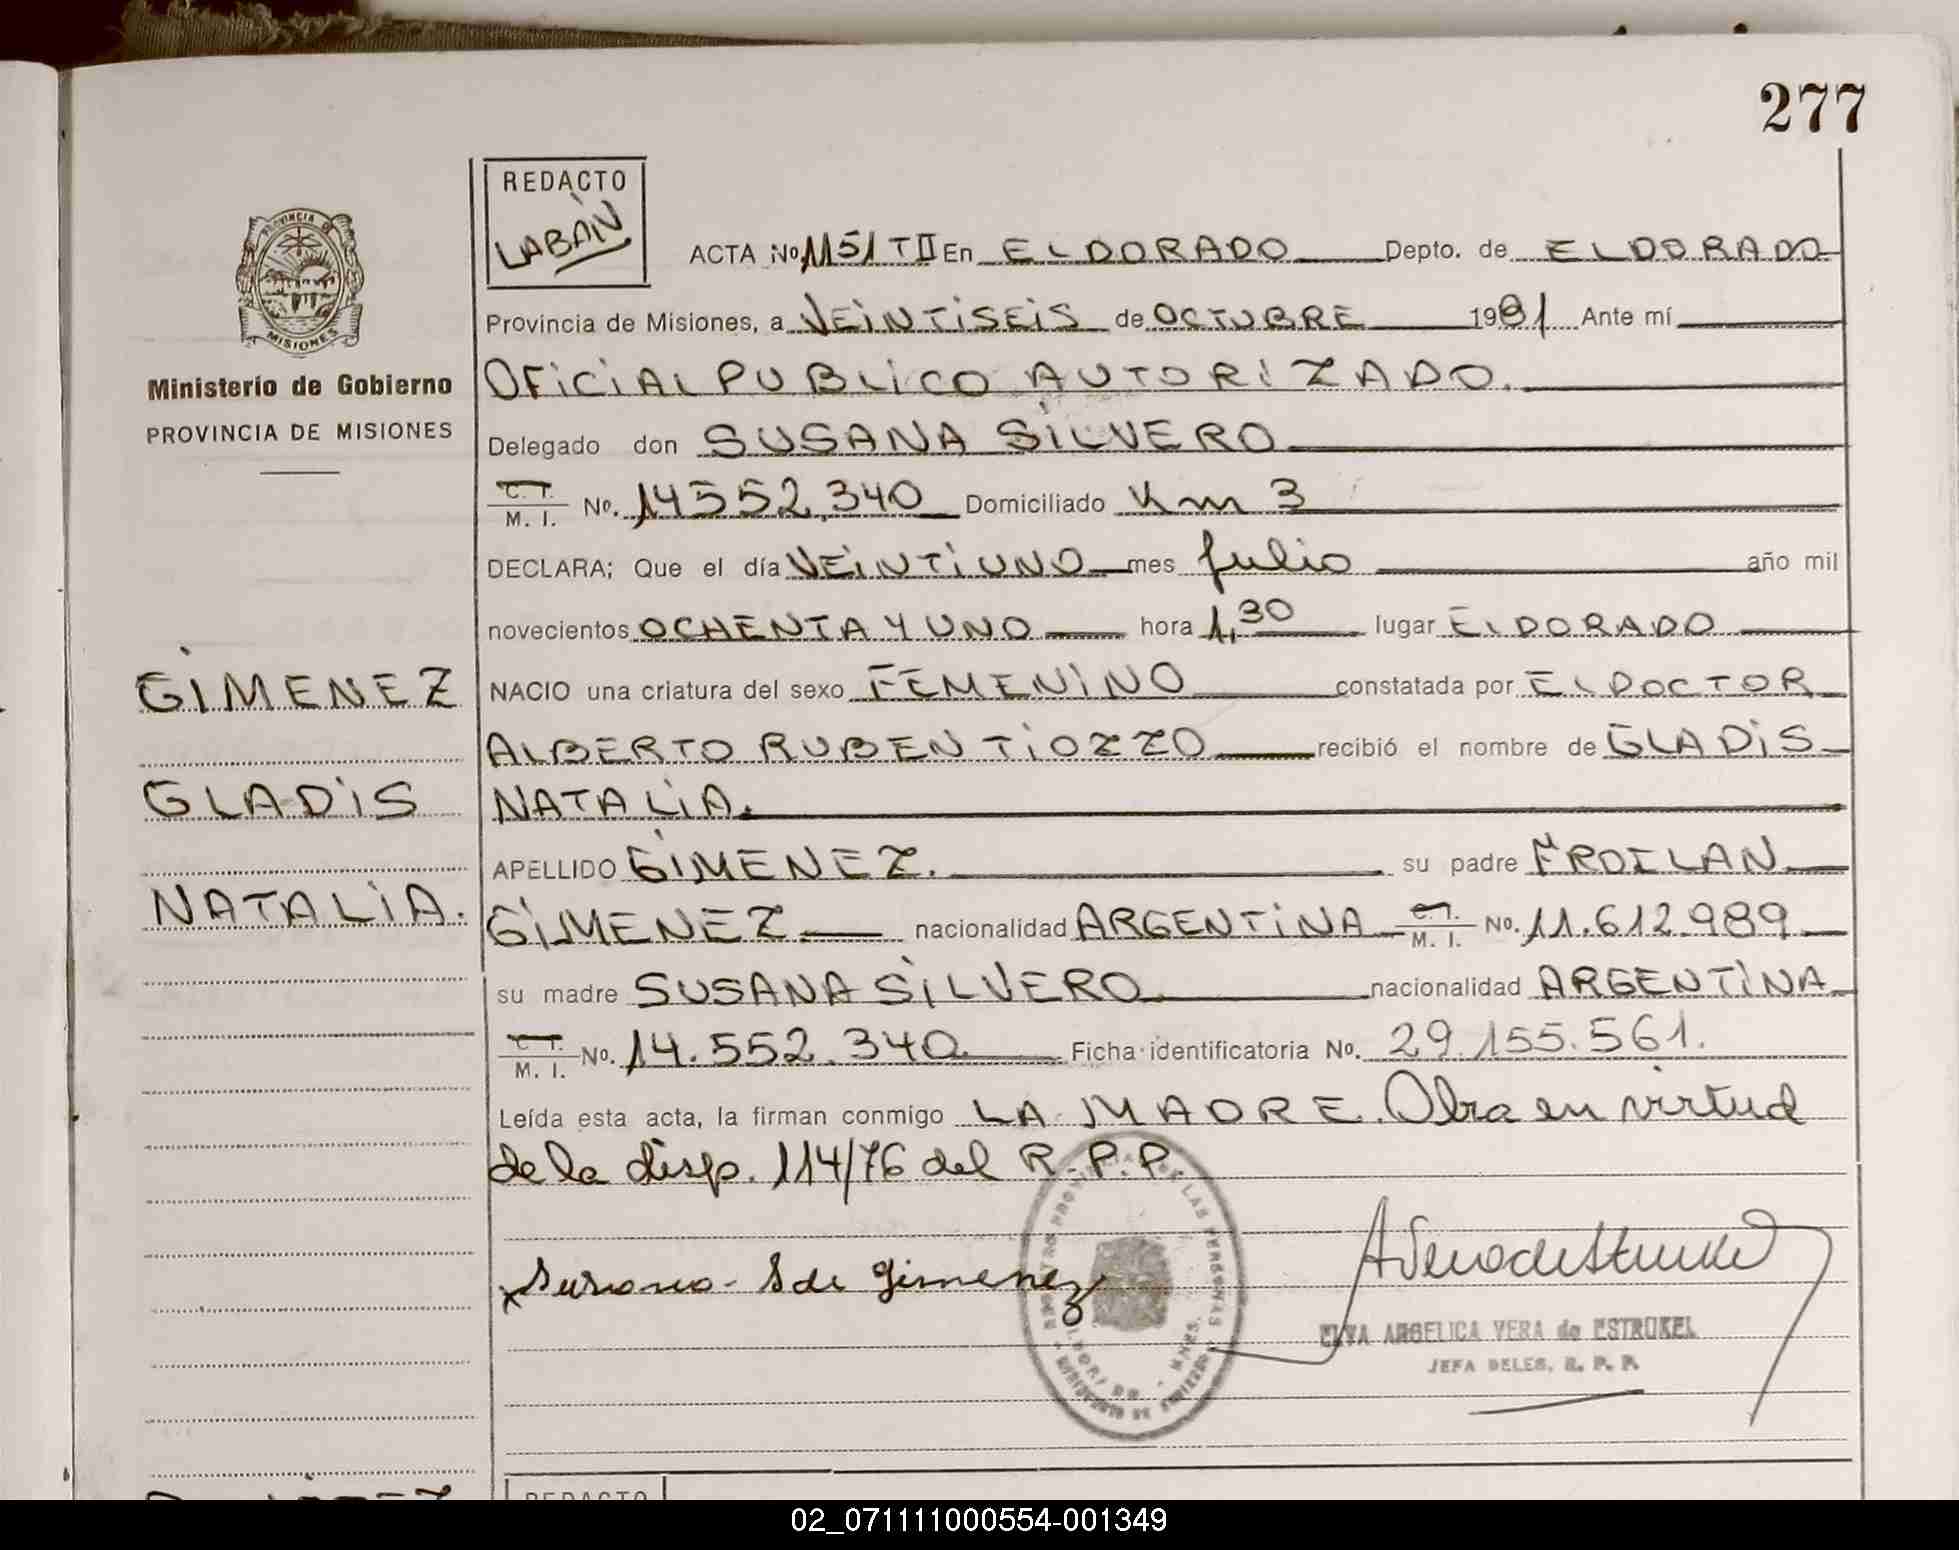 277
REDACTO
LABÁN
PROVINCIA D
MISIONES
Ministerio de Gobierno
PROVINCIA DE MISIONES
ACTA No 1151 TII En ELDORADO Depto. de ELDORADO
Provincia de Misiones, a VEINTISEIS de OCTUBRE 1981 Ante mí
OFICIAL PUBLICO AUTORIZADO.
Delegado don SUSANA SILVERO
C. I. M. I. No. 14552.340 Domiciliado Km 3
DECLARA; Que el día VEINTIUNO mes Julio año mil
novecientos OCHENTA Y UNO hora 1,30 lugar ELDORADO
NACIO una criatura del sexo FEMENINO constatada por EL DOCTOR
ALBERTO RUBEN TIOZZO recibió el nombre de GLADIS
NATALIA.
APELLIDO GIMENEZ. su padre FROILAN
GIMENEZ nacionalidad ARGENTINA C. I. M. I. No. 11.612.989
su madre SUSANA SILVERO nacionalidad ARGENTINA
C. I. M. I. No. 14.552.340. Ficha identificatoria No. 29.155.561.
Leída esta acta, la firman conmigo LA MADRE. Obra en virtud
de la disp. 114/76 del R.P.P.
GIMENEZ
GLADIS
NATALIA.
x Susana S de Gimenez
ELVA ARGELICA VERA de ESTROKEL
JEFA DELEG. R. P. P.
REDACTO
02_071111000554-001349